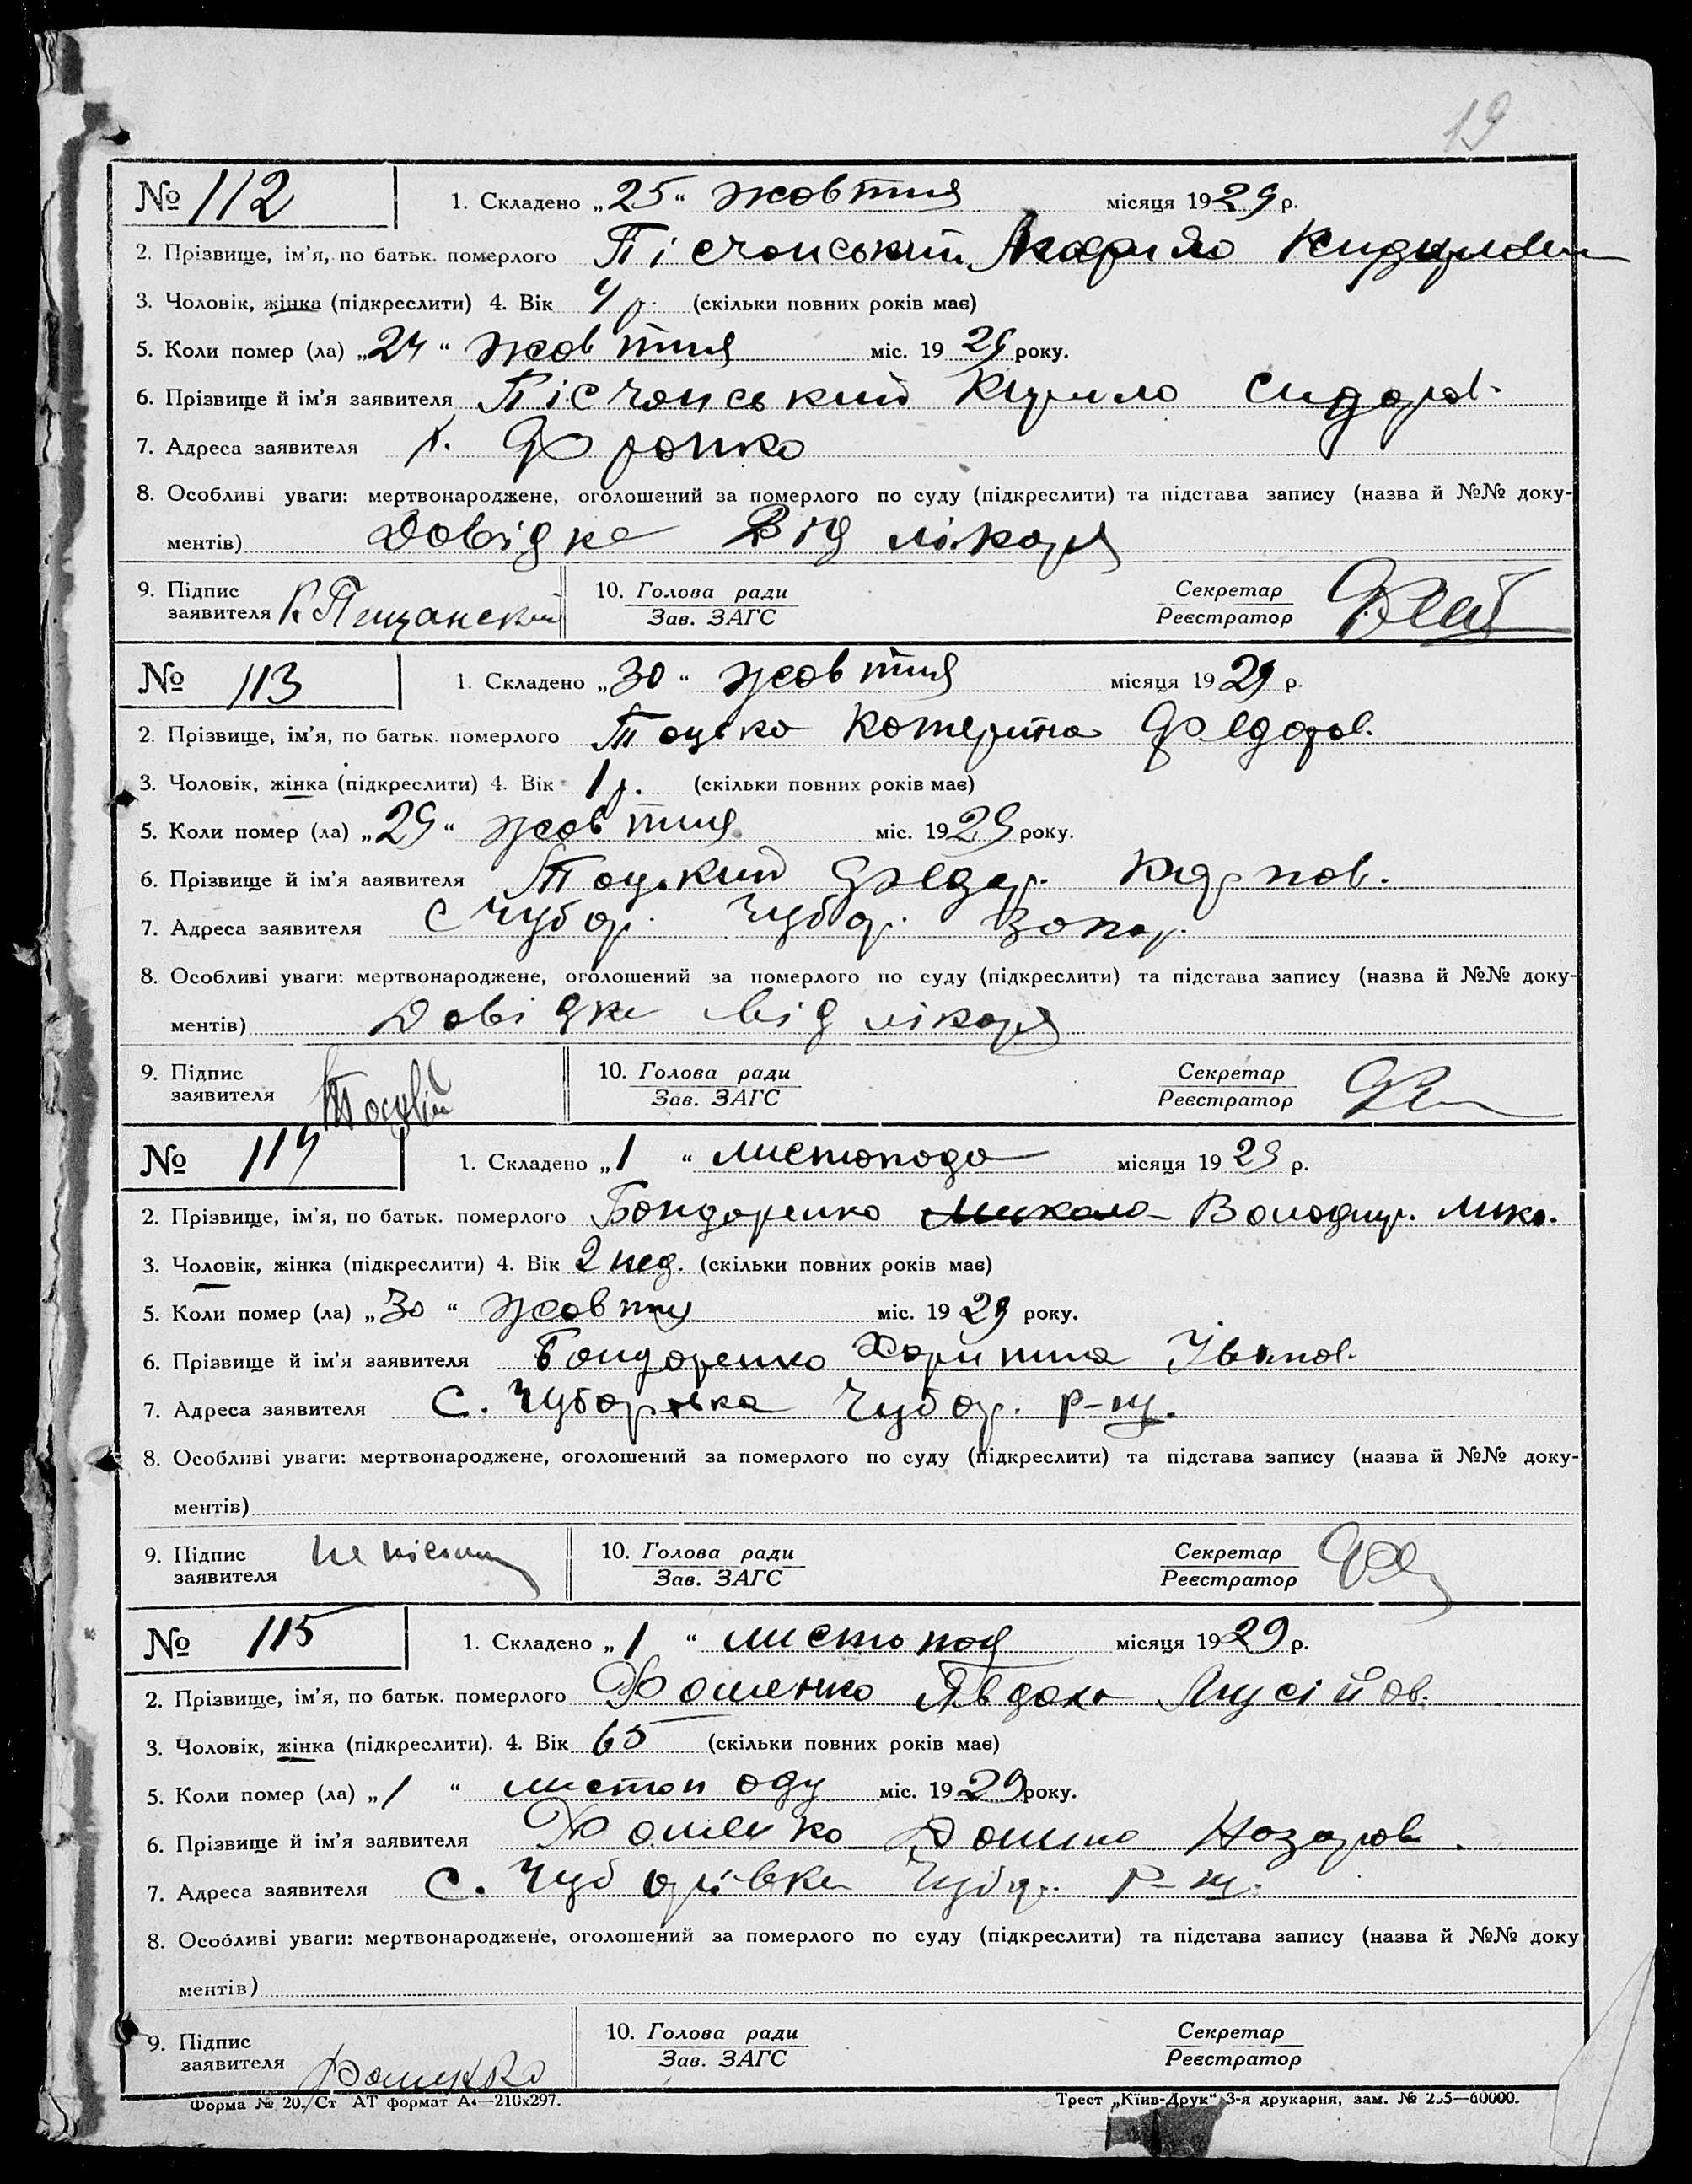 19
№ 112 1. Складено „25“ жовтня місяця 1929 р.
2. Прізвище, ім'я, по батьк. померлого Пісчонський
3. Чоловік, жінка (підкреслити) 4. Вік 4 р. (скільки повних років має)
5. Коли помер (ла) „24“ жовтня міс. 1929 року.
6. Прізвище й ім'я заявителя Пісчонський Кирило Сидоров.
7. Адреса заявителя х. Франко
8. Особливі уваги: мертвонароджене, оголошений за померлого по суду (підкреслити) та підстава запису (назва й №№ доку-
ментів) Довідка Від лікаря
9. Підпис 10. Голова ради Секретар
заявителя К Пещанский Зав. ЗАГС Реєстратор
№ 113 1. Складено „30“ жовтня місяця 1929 р.
2. Прізвище, ім'я, по батьк. померлого Тоцька Катерина Федоров.
3. Чоловік, жінка (підкреслити) 4. Вік 1 р. (скільки повних років має)
5. Коли помер (ла) „29“ жовтня міс. 1929 року.
6. Прізвище й ім'я ааявителя Тоцький Федор. Карпов.
7. Адреса заявителя с Чубар. Чубар.
8. Особливі уваги: мертвонароджене, оголошений за померлого по суду (підкреслити) та підстава запису (назва й №№ доку-
ментів) Довідка від лікаря
9. Підпис 10. Голова ради Секретар
заявителя Зав. ЗАГС Реєстратор
№ 114 1. Складено „1“ листопада місяця 1929 р.
2. Прізвище, ім'я, по батьк. померлого Бондаренко Микола Володмир. Мико.
3. Чоловік, жінка (підкреслити) 4. Вік 2 нед. (скільки повних років має)
5. Коли помер (ла) „30“ жовтня міс. 1929 року.
6. Прізвище й ім'я заявителя Бондаренко Харитина Іванов.
7. Адреса заявителя С. Чубарівка Чубар. р-ну.
8. Особливі уваги: мертвонароджене, оголошений за померлого по суду (підкреслити) та підстава запису (назва й №№ доку-
ментів)
9. Підпис 10. Голова ради Секретар
заявителя Зав. ЗАГС Реєстратор
№ 115 1. Складено „1“ листопад місяця 1929 р.
2. Прізвище, ім'я, по батьк. померлого Фоменко Явдоха Мусійов.
3. Чоловік, жінка (підкреслити). 4. Вік 65 (скільки повних років має)
5. Коли помер (ла) „1“ листопаду міс. 1929 року.
6. Прізвище й ім'я заявителя Фоменко Назаров.
7. Адреса заявителя с. Чубарівка Чубар. р-ну.
8. Особливі уваги: мертвонароджене, оголошений за померлого по суду (підкреслити) та підстава запису (назва й №№ доку
ментів)
9. Підпис 10. Голова ради Секретар
заявителя Зав. ЗАГС Реєстратор
Форма № 20. Ст АТ формат А4—210х297. Трест „Київ-Друк“ 3-я друкарня, зам. № 60000.